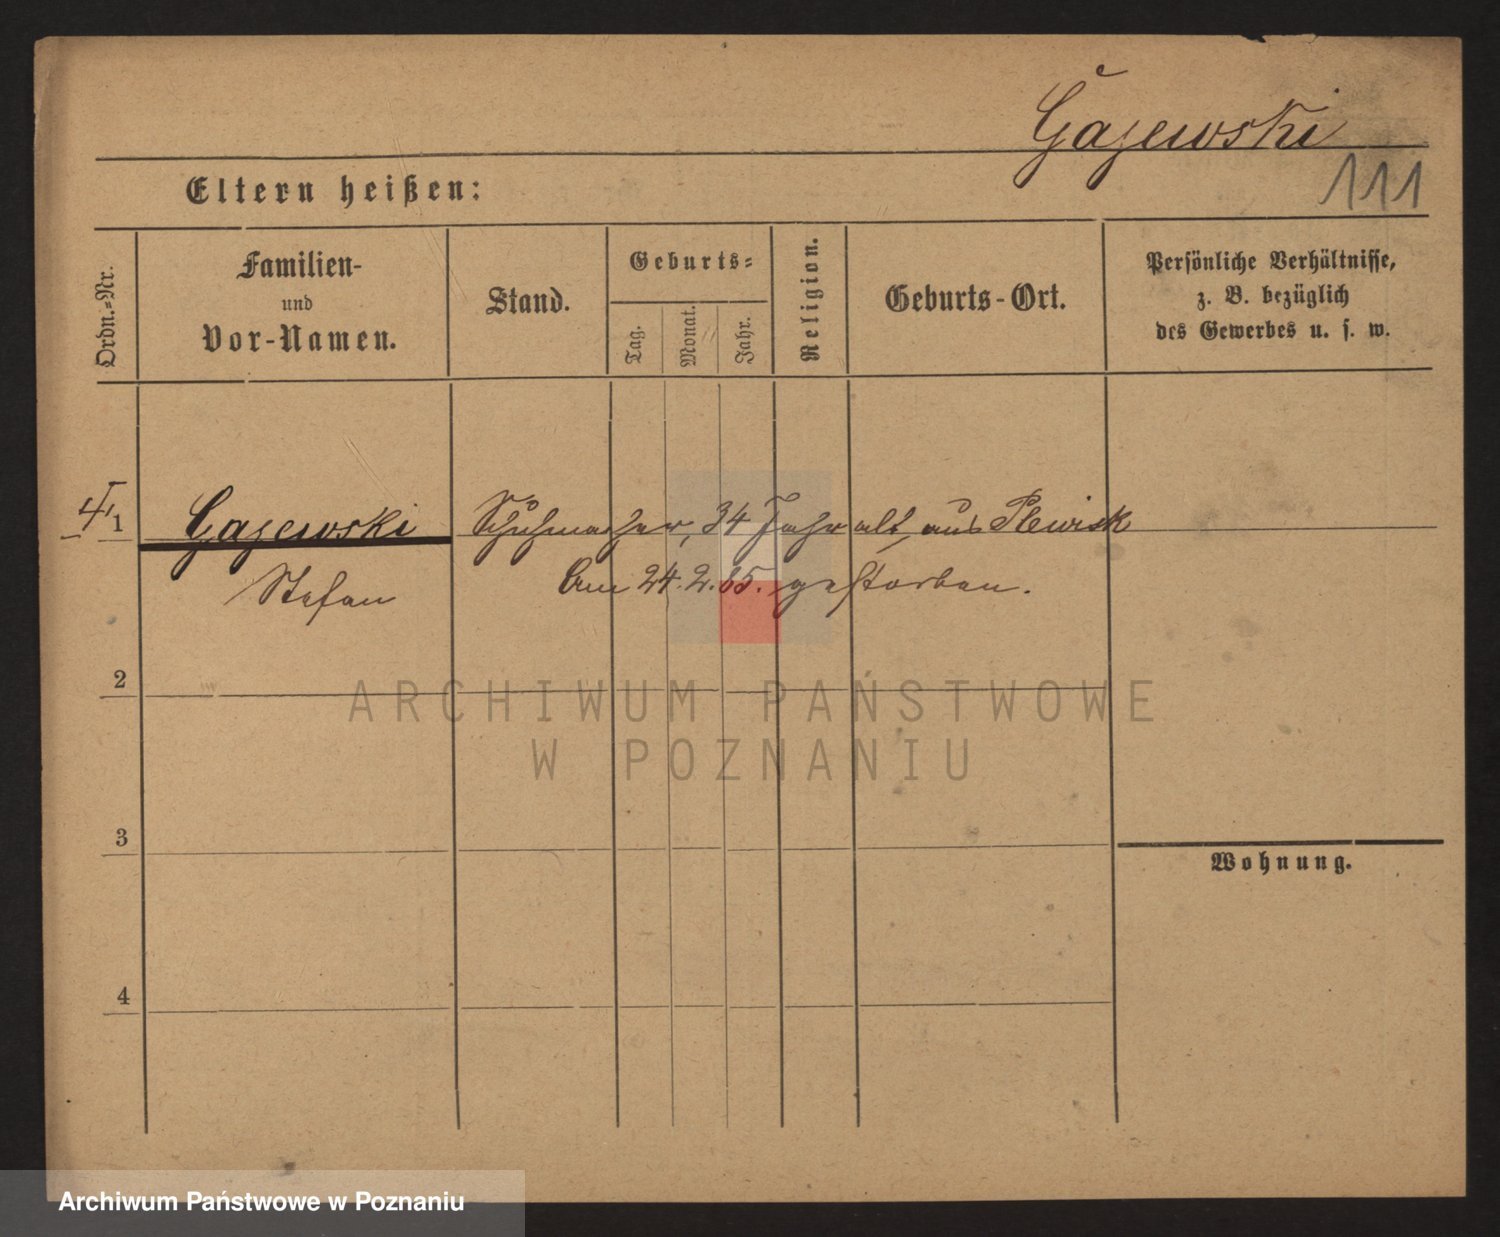 Gajewski
111
Eltern heißen:
Ordn.-Nr.
Familien-
und
Vor-Namen.
Stand.
Geburts-
Tag.
Monat.
Jahr.
Religion.
Geburts-Ort.
Persönliche Verhältnisse,
z. B. bezüglich
des Gewerbes u. s. w.
1 Gajewski Schuhmacher, 34 Jahr alt, aus Plewisk
Stefan Am 24.2.65. gestorben.
2
ARCHIWUM PAŃSTWOWE
W POZNANIU
3
Wohnung.
4
Archiwum Państwowe w Poznaniu